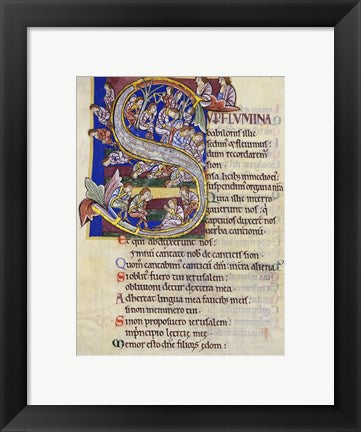 SUP FLUMINA
babilonis illic
sedimus & flevimus:
dum recordaremur
sion
In salicibus in medio ei:
suspendimus organa nra
Quia illic interro
gaverunt nos: q
captivos duxert nos
verba cantionū.
Et qui abduxerunt nos:
ymnū cantate nob de canticis sion
Quom cantabim canticū dni: in tra aliena:
Si oblit fuero tui ierusalem:
oblivioni detur dextera mea.
Adhereat lingua mea faucib meis:
si non meminero tui.
Si non proposuero ierusalem:
in principio leticie mee.
Memor esto dne filioȝ edom: